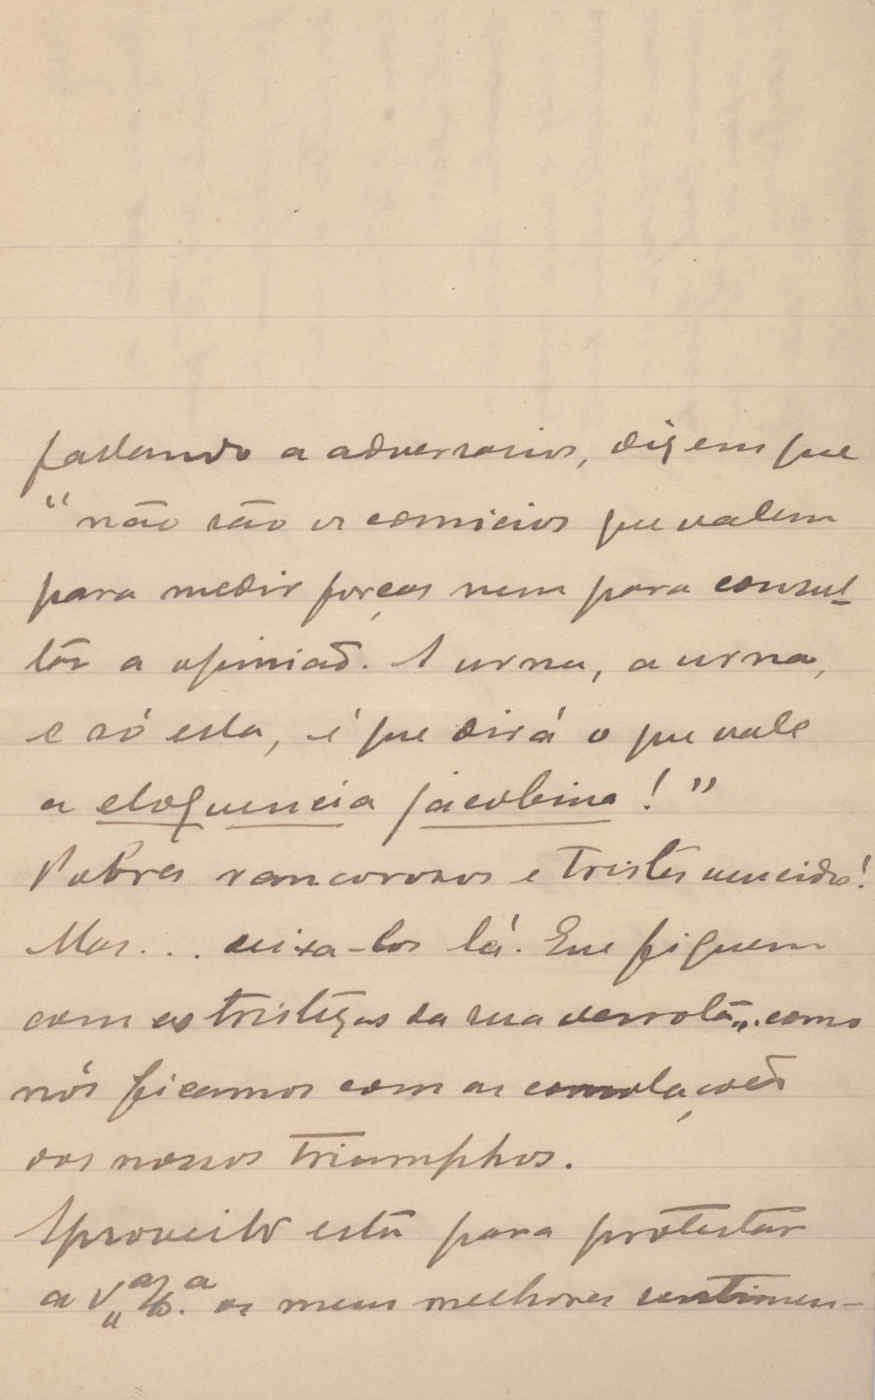 fallando a adversarios, dizem que
"não são os comicios que valem
para medir forças nem para consul-
tar a opinião. A urna, a urna,
e só esta, é que dirá o que vale
a eloquencia jacobina!"
Pobres rancorosos e tristes vencidos!
Mas... deixa-los lá. Que fiquem
com as tristezas da sua derrota... como
nós ficamos com as consolações
dos nossos triumphos.
Aproveito esta para protestar
a V. as meus melhores sentimen-